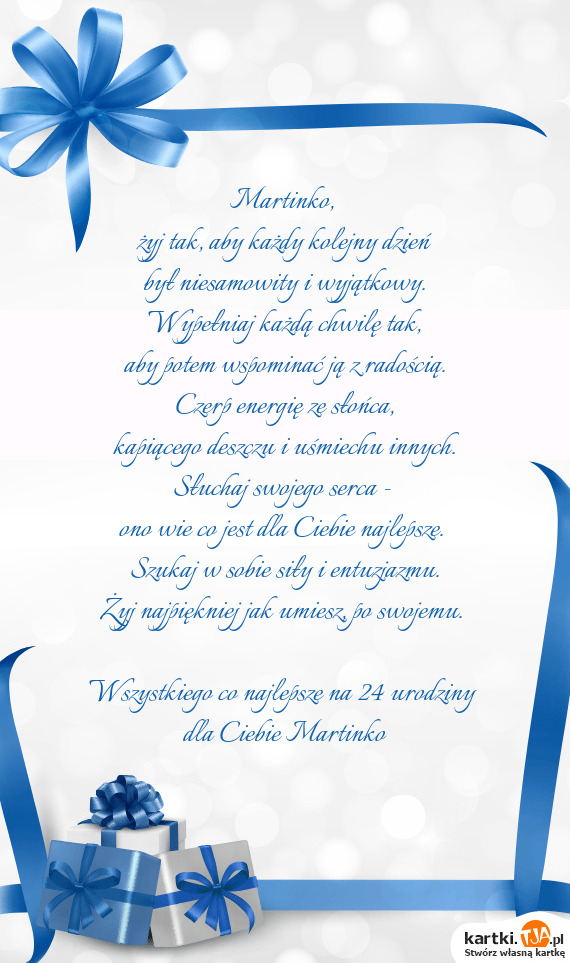 Martinko,
żyj tak, aby każdy kolejny dzień
był niesamowity i wyjątkowy.
Wypełniaj każdą chwilę tak,
aby potem wspominać ją z radością.
Czerp energię ze słońca,
kapiącego deszczu i uśmiechu innych.
Słuchaj swojego serca -
ono wie co jest dla Ciebie najlepsze.
Szukaj w sobie siły i entuzjazmu.
Żyj najpiękniej jak umiesz, po swojemu.
Wszystkiego co najlepsze na 24 urodziny
dla Ciebie Martinko
kartki.TJA.pl
Stwórz własną kartkę